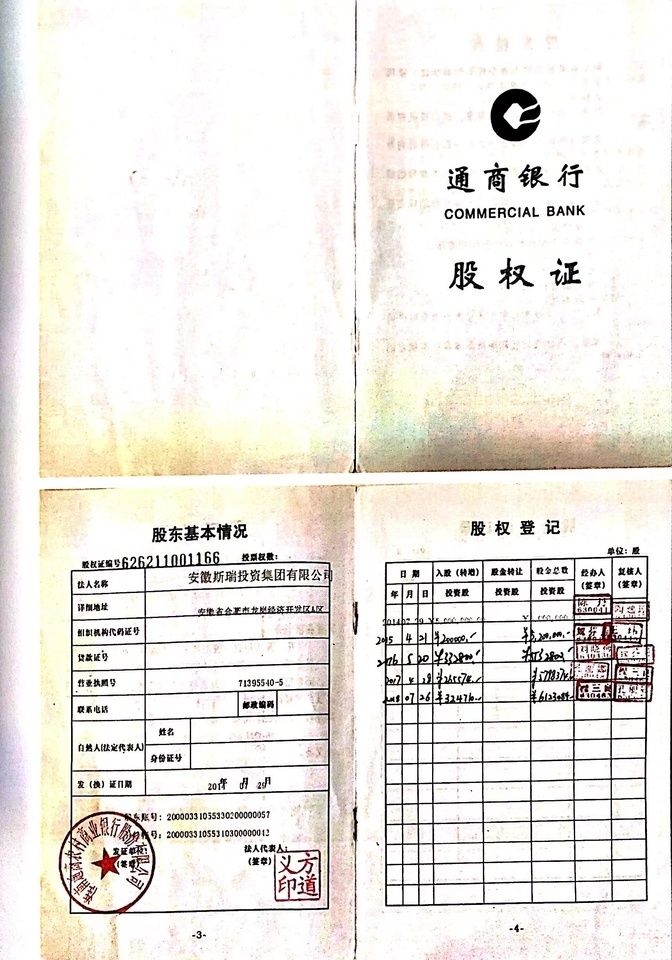 通商银行
COMMERCIAL BANK
股权证
股东基本情况
股权证编号626211001166 投票权数:
法人名称 安徽斯瑞投资集团有限公司
详细地址 安徽省合肥市龙岗经济开发区A区
组织机构代码证号
贷款证号
营业执照号 71395540-5
联系电话 邮政编码
自然人(法定代表人) 姓名
身份证号
发(换)证日期 2014年 07 29日
股东账号: 20000331055330200000057
账号: 20000331055310300000012
发证单位: 法人代表人:
(签章) (签章)
方道
义印
-3-
股权登记
单位: 股
日期 入股(转增) 股金转让 股金总数 经办人 复核人
年 月 日 投资股 投资股 投资股 (签章) (签章)
2014 07 29 ¥5,000,000
2015 4 21 ¥200000.- ¥5,200,000.-
2016 5 20 ¥332800.- ¥5532802.-
2017 4 18 ¥265574.- ¥5798374.-
2018 07 26 ¥32471
-4-